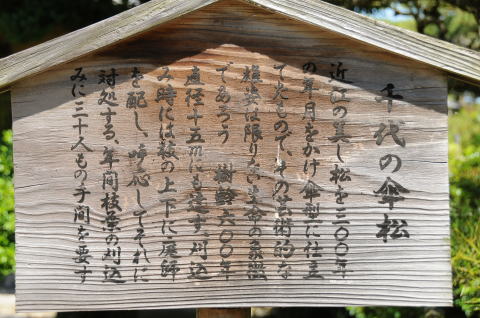 千代の傘松
近江の美し松を三〇〇年
の年月をかけ傘型に仕立
て火もので、その芸術的な
雄姿は限りない生命の象徴
であろう 樹齢六〇〇年
直径十五mにも達す、刈込
み時には枝の上下に庭師
を配し、呼応してそれに
対処する、年間枝葉の刈込
みに三十人もの手間を要す